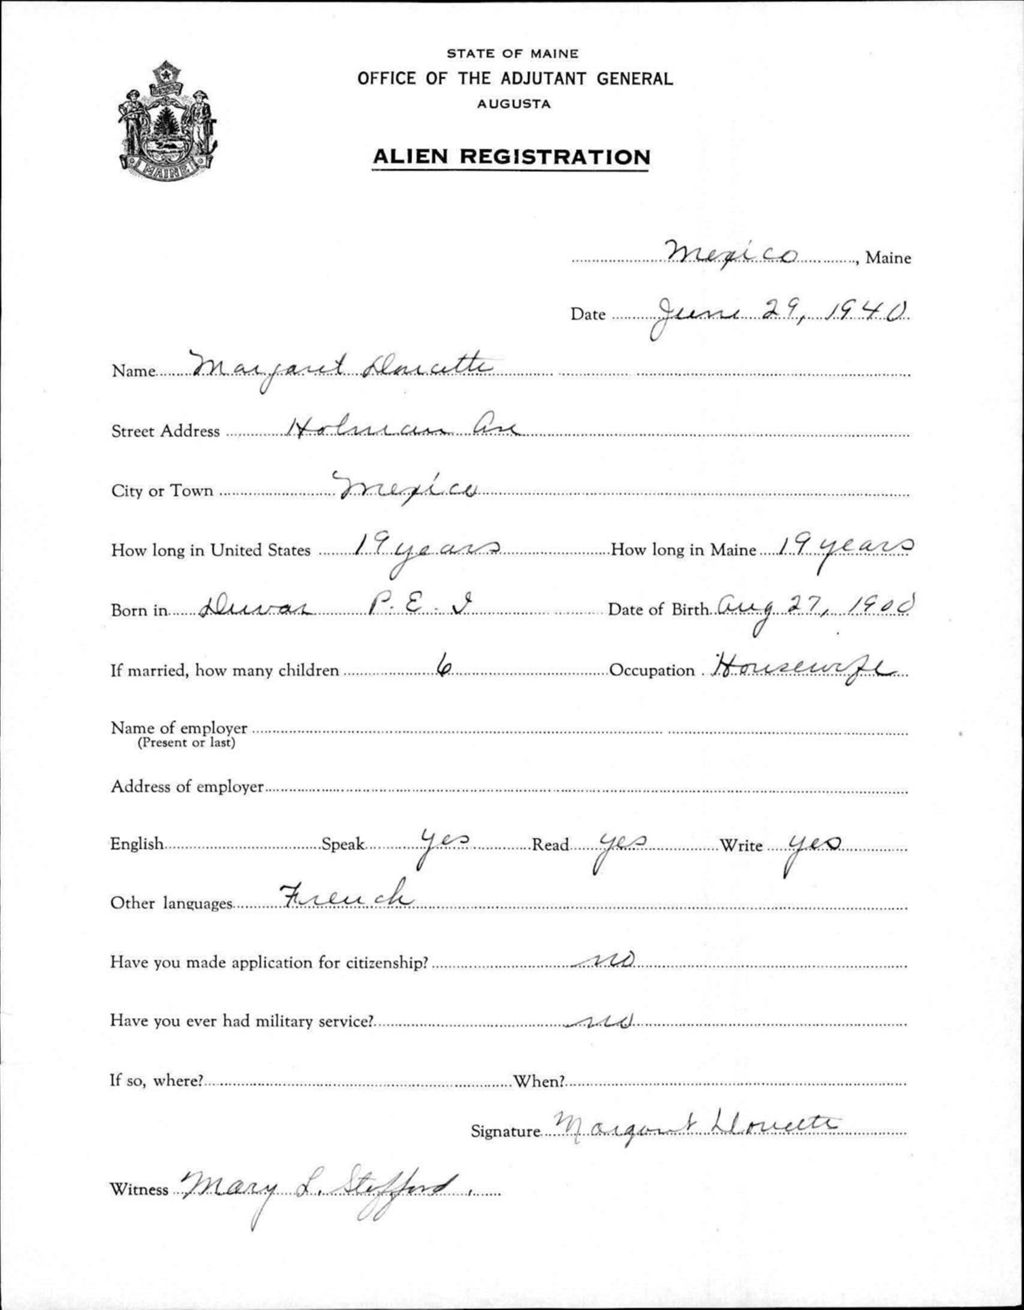 STATE OF MAINE
OFFICE OF THE ADJUTANT GENERAL
AUGUSTA
MAINE
ALIEN REGISTRATION
Mexico, Maine
Date June 29, 1940
Name Margaret Doucette
Street Address Holman Ave
City or Town Mexico
How long in United States 19 years How long in Maine 19 years
Born in Duvar P.E.I Date of Birth Aug 27, 1900
If married, how many children 6 Occupation Housewife
Name of employer
(Present or last)
Address of employer
English Speak yes Read yes Write yes
Other languages French
Have you made application for citizenship? no
Have you ever had military service? no
If so, where? When?
Signature Margaret Doucette
Witness Mary L. Stafford.